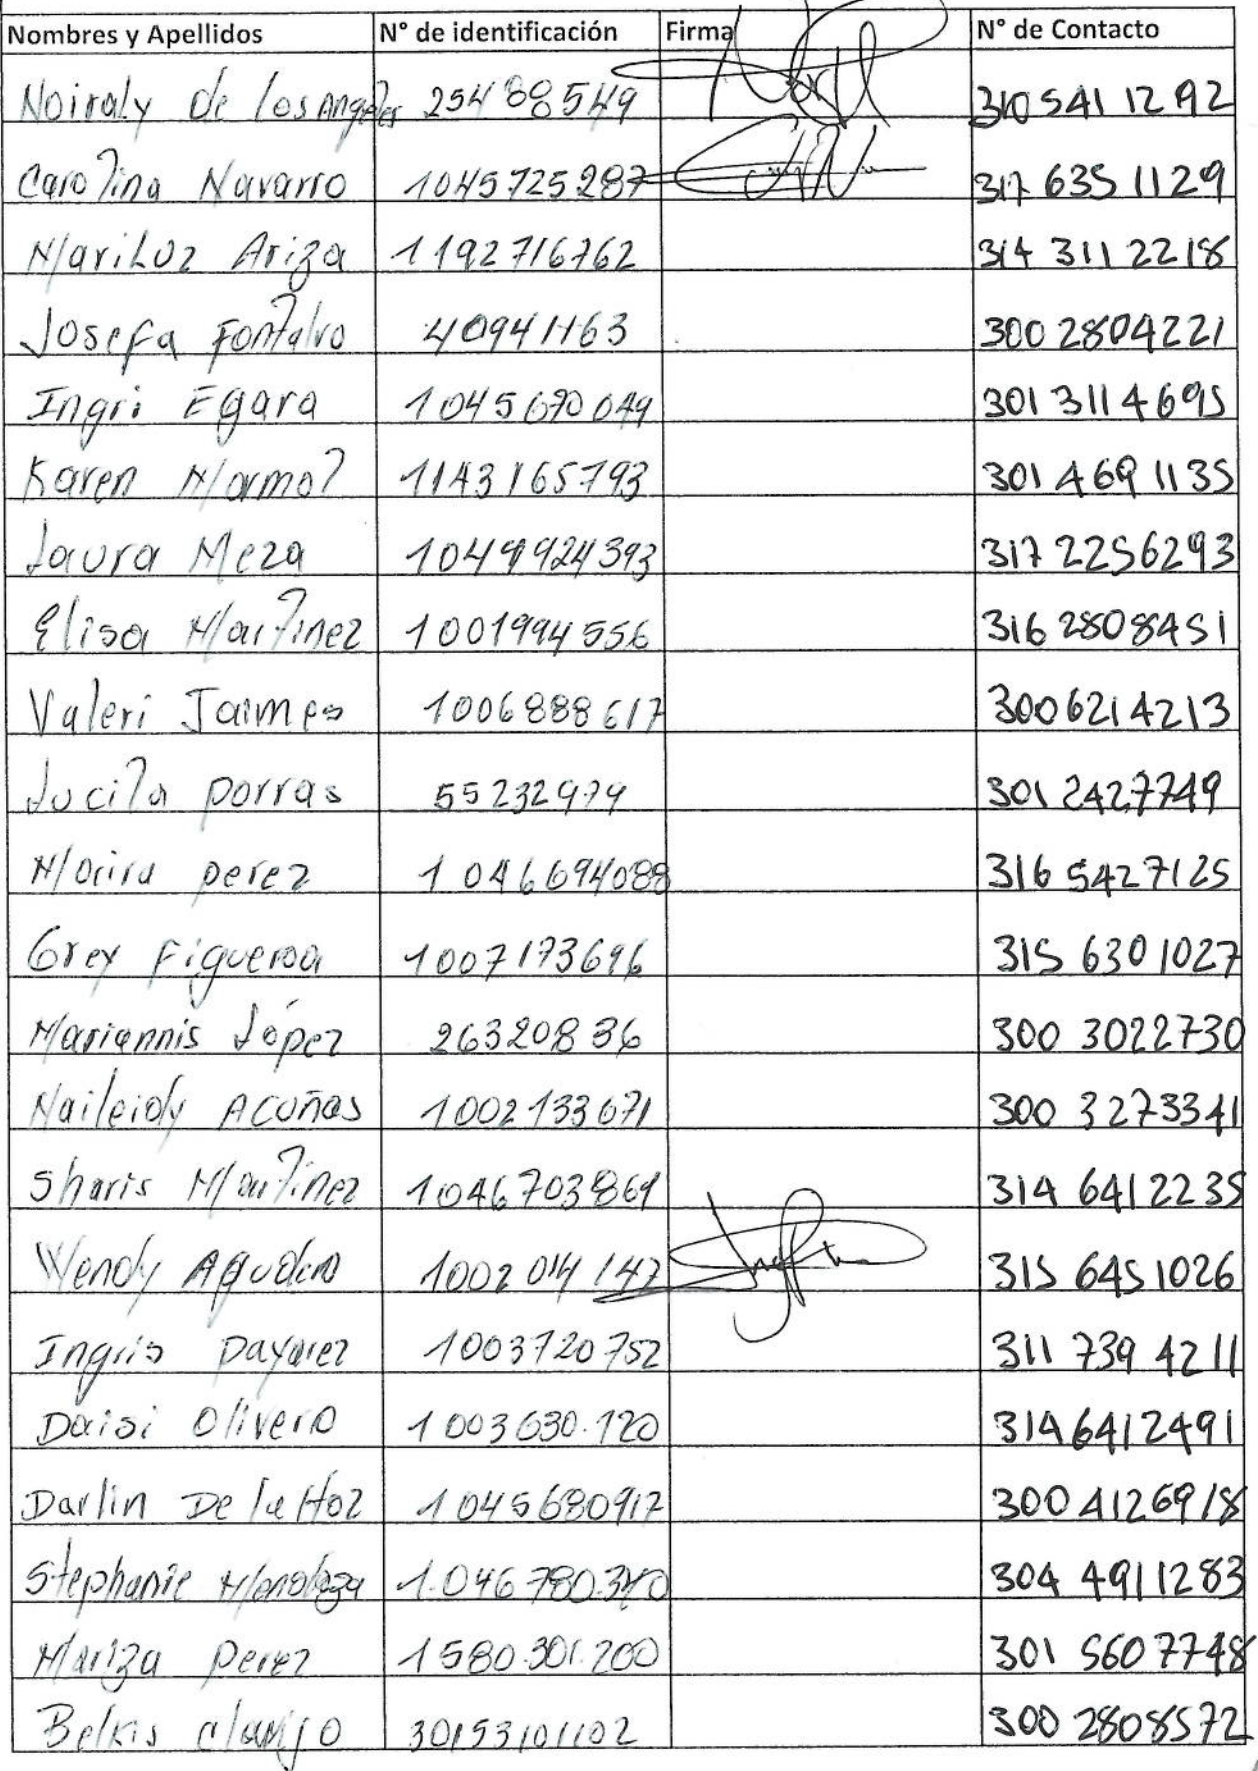 Nombres y Apellidos N° de identificación Firma N° de Contacto
Noiraly de los Angeles 25488549 310 541 1292
Carolina Navarro 1045725287 317 635 1129
Mariluz Ariza 1192716762 314 311 2218
Josefa Fontalvo 40941163 300 2804221
Ingri Egara 1045690049 301 3114695
Karen Marmol 1143165793 301 469 1135
Laura Meza 1049924393 317 2256293
Elisa Martinez 1001994556 316 2808451
Valeri Jaimes 1006888617 300 6214213
Lucila porras 55232979 301 2427749
Maira perez 1046694088 316 5427125
Grey Figueroa 1007173696 315 630 1027
Mariannis López 26320836 300 3022730
Naileidy Acuñas 1002133671 300 3273341
Sharis Martinez 1046703869 314 6412235
Wendy Agudelo 1002014147 315 645 1026
Ingris Payarez 1003720752 311 739 4211
Daisi Olivero 1003630.120 314 6412491
Darlin De la Hoz 1045680917 300 4126918
Stephanie Mendoza 1.046780.340 304 4911283
Mariza perez 1580.301.200 301 560 7748
Belkis clavijo 30153101102 300 2808572